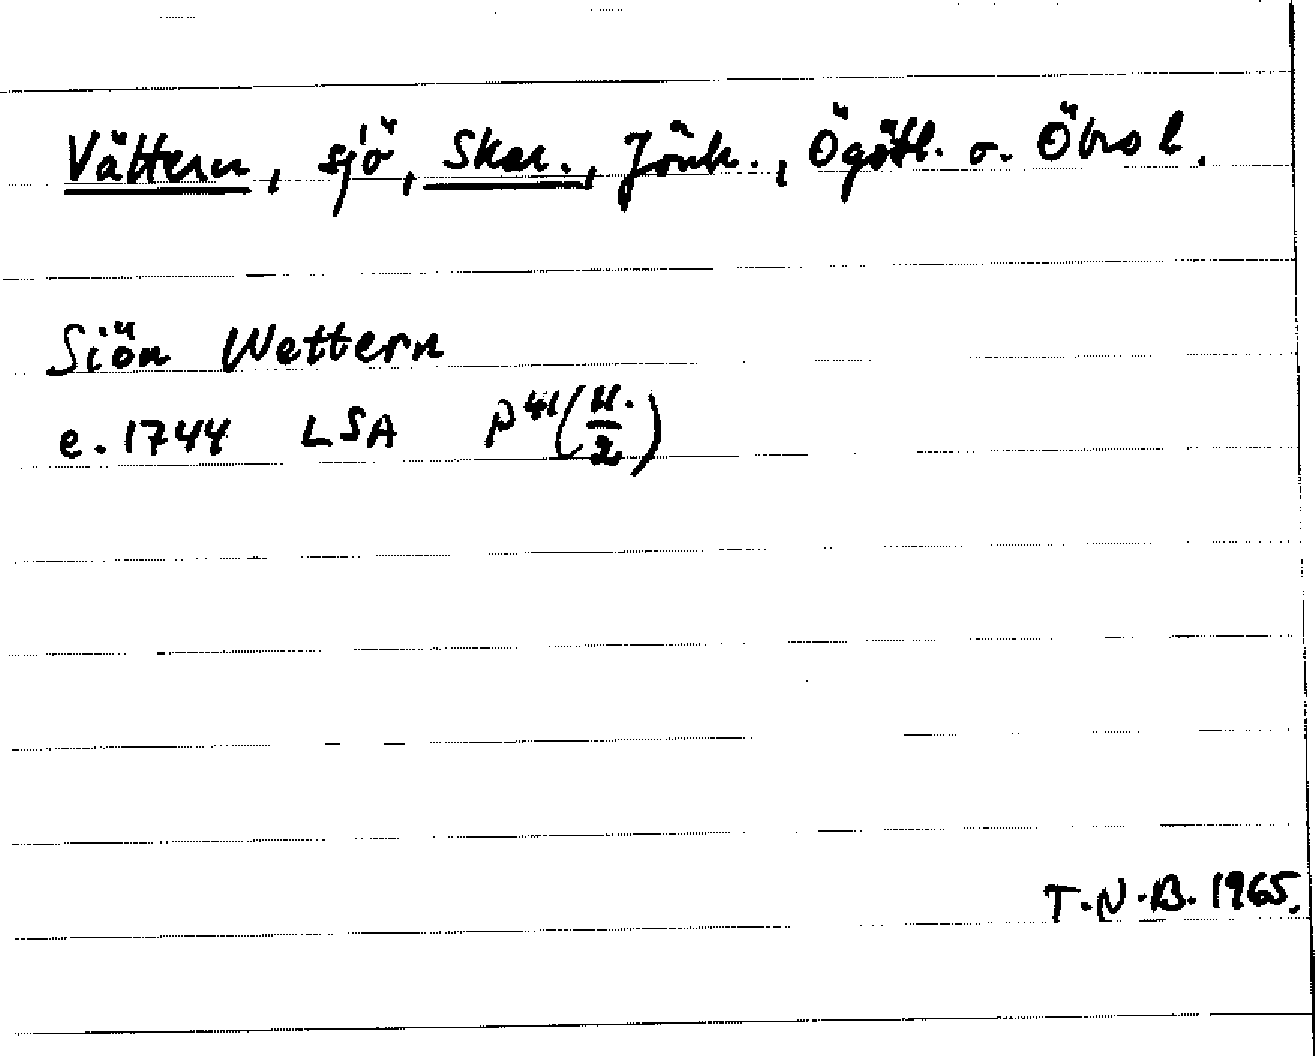 Vättern, sjö, Skar., Jönk., Ögötl. o. Öbro l.
Siön Wettern
e. 1744 LSA P 41 (11./2)
T.N.B. 1965.